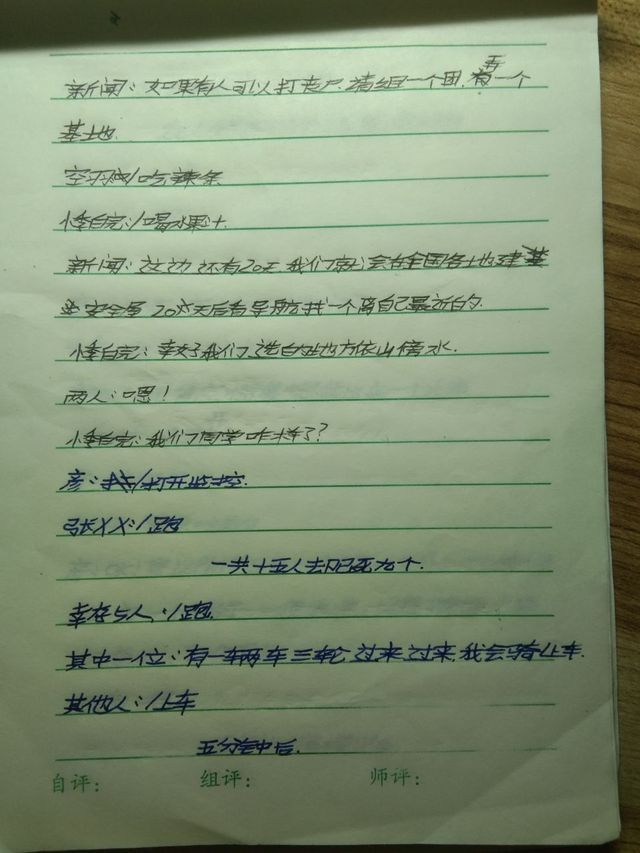 新闻：如果有人可以打丧尸.请组一个团.再有一个
基地.
空羽：/吃辣条
小季自完：/喝水果汁.
新闻：这边还有20天.我们就会在全国各地建基
安全屋 20天后看导航找一个离自己最近的.
小季自完：幸好我们选的地方依山傍水.
两人：嗯！
小季自完：我们同学咋样了？
彦：/打开监控.
张XX：/跑
一共十五人去 死九个.
幸存人：/跑.
其中一位：有一车两车三轮 过来过来.我会骑上车.
其他人：/上车
五分钟后.
自评：
组评：
师评：